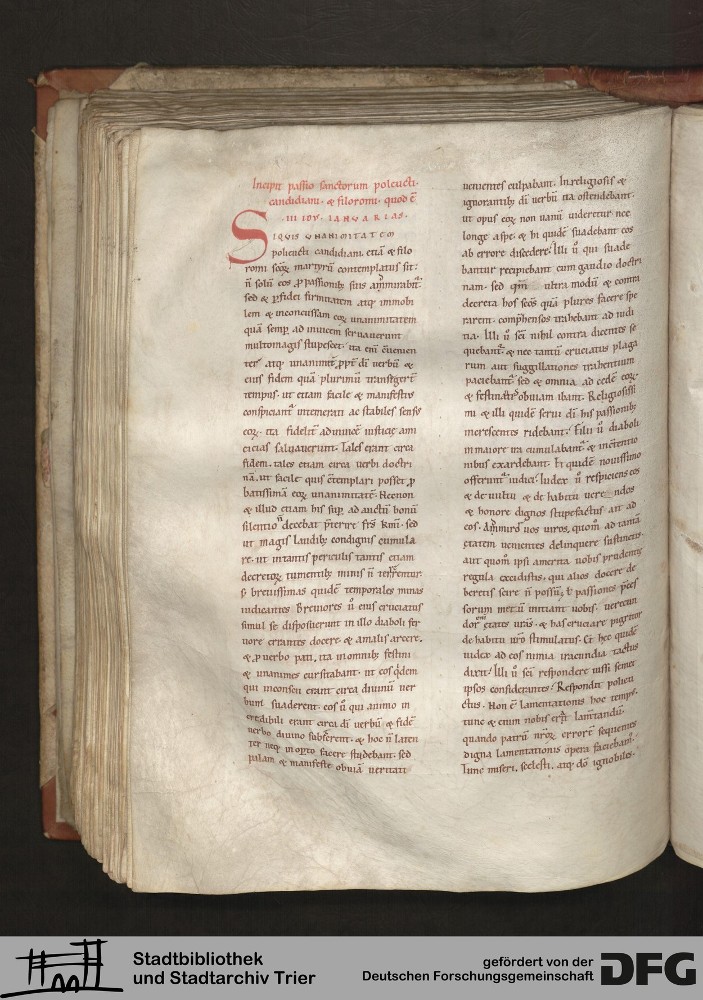 Incipit passio sanctorum poleucti.
candidiani. & filoromi. quod ē
.III IDV. IANVARIAS.
SIQVIS VNANIMITATEM
poliencti candidiani. etiā & filo
romi scōꝝ martyrū contemplatus sit:
n̄ solū eos ꝓ passionibꝫ suis
sed & ꝓ fidei firmitatem atqꝫ immobi
lem & inconcussam eoꝝ unanimitatem
quā semꝑ ad inuicem seruauerunt
multo magis stupescet. ita enī
atqꝫ unanimit̄ ꝓpt̄ dī uerbū &
eius fidem quā plurimū
tempus. ut etiam facile & manifeste
intemerati ac stabiles sensꝰ
eoꝝ. ita fidelit̄ adinuicē iusticię ami
cicias saluauerunt. Tales erant circa
fidem. tales etiam circa uerbi doctri
nā. ut facile quis cōtemplari posset ꝓ
batissimā eoꝝ unanimitatē. Necnon
& illud etiam his sup̄ ad bonū
silentio n̄ decebat p̄terire frs̄ kmī. sed
ut magis laudibꝫ condignis cumula
re. ut in tantis periculis tantis etiam
decretoꝝ tumentibꝫ minis n̄ terrerentur.
breuissimas quidē temporales minas
iudicantes Breuiores ū eius cruciatus
simul se disposuerunt in illo diaboli fer
uore errantes docere. & a malis arcere.
& ꝓ uerbo pati. ita in omnibꝫ festini
& unanimes cursitabant. ut eos q̄dem
qui inconscii erant circa diuinū uer
bum suaderent. eos ū qui animo in
credibili erant circa dī uerbū & fidē
uerbo diuino & hoc n̄ laten
ter neqꝫ in occulto facere studebant. sed
palam & manifeste obuiā ueritati
uenientes culpabant. Inreligiosis &
ignorantibꝫ dī uerbū ita ostendebant.
ut opus eoꝝ non uanū uideretur nec
longe a spe. & hi quidē suadebant eos
ab errore discedere. Illi ū qui suade
bantur recipiebant cum gaudio doctri
nam. sed qm̄ ultra modū & contra
decreta hos scōs quā plures facere spe
rarent. comp̄hensos trahebant ad iudi
cia. Illi ū scī nihil contra dicentes se
quebant̄. & nec tantū cruciatus plaga
rum aut suggillationes trahentium
paciebant̄. sed & omnia ad cędē eoꝝ.
& festinant̄ obuiam ibant. Religiosissi
mi & illi quidē serui dī his passionibꝫ
ridebant. Filii ū diaboli
in maiore ira cumulabant̄. &
nibus exardebant. Et quidē nouissimo
offerunt̄ iudici. Iudex ū respiciens eos
& de uultu & de habitu uerendos
& honore dignos stupefactus ait ad
eos. Ammiror uos uiros. quom̄ ad tantā
ętatem uenientes delinquere sustinetis.
aut quom̄ ipsi amentia uobis prudentię
regula excidistis. qui alios docere de
beretis scire n̄ possū. ł passiones p̄ces
sorum metū initiant uobis. uerecun
dor etates urās. & has cruciare
de habitu uro stimulatus. Et hęc quidē
iudex ad eos nimia iracundia tactus
dixit. Illi ū scī respondere iusti semet
ipsos considerantes. Respondit polieu
ctus. Non ē lamentationis hoc tempꝰ.
tunc & enim nobis erat lamtandū.
quando patrū nr̄oꝝ errorē sequentes
digna lamentationis opera faciebamꝰ.
Tunc miseri. scelesti. atqꝫ dō ignobiles.
Stadtbibliothek
und Stadtarchiv Trier
gefördert von der
Deutschen Forschungsgemeinschaft
DFG